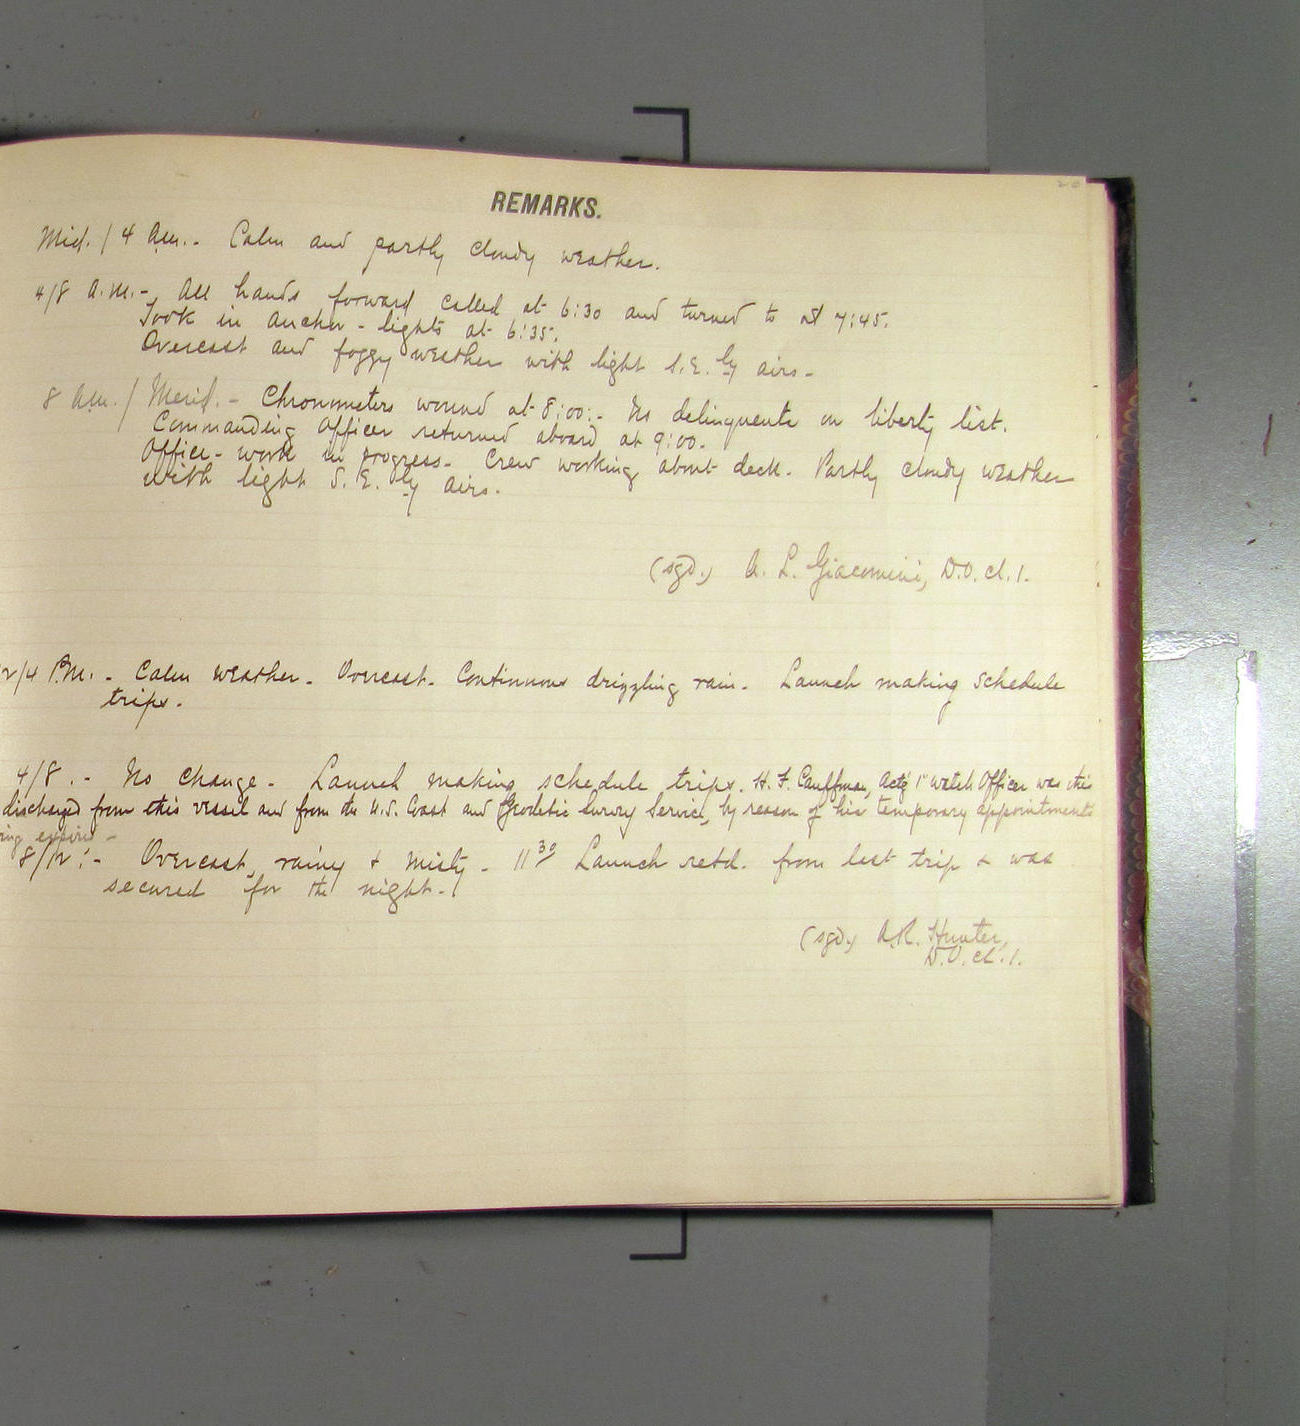 REMARKS.
Mid. / 4 Am. - Calm and partly cloudy weather.
4/8 A.M. - All hands forward called at 6:30 and turned to at 7:45.
Took in anchor - lights at 6:35.
Overcast and foggy weather with light S.E.ly airs -
8 Am. / Merid. - Chronometers wound at 8:00. - No delinquents on liberty list.
Commanding Officer returned aboard at 9:00.
Office - work in progress - Crew working about deck. Partly cloudy weather
with light S.E.ly airs.
(sgd.) A. L. Giacomini, D.O. cl. 1.
2/4 P.M. - Calm weather - Overcast - Continuous drizzling rain - Launch making schedule
trips.
4/8 . - No change - Launch making schedule trips. H. F. Cauffman, Actg 1st Watch Officer was this
discharged from this vessel and from the U.S. Coast and Geodetic Survey Service, by reason of his temporary appointments
ing expired -
8/12 : - Overcast, rainy & misty - 11 30 Launch retd. from last trip & was
secured for the night -
(sgd.) A.R. Hunter,
D.O. cl. 1.